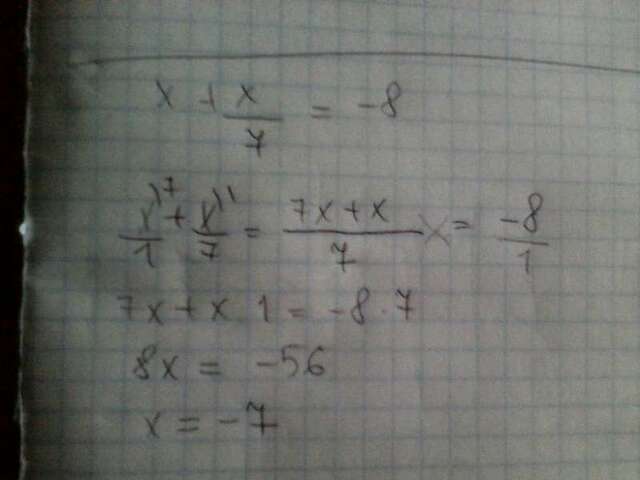 x + x/7 = -8
x/1 ⁾⁷ + x/7 ⁾¹ = 7x+x/7 x = -8/1
7x+x 1 = -8·7
8x = -56
x = -7